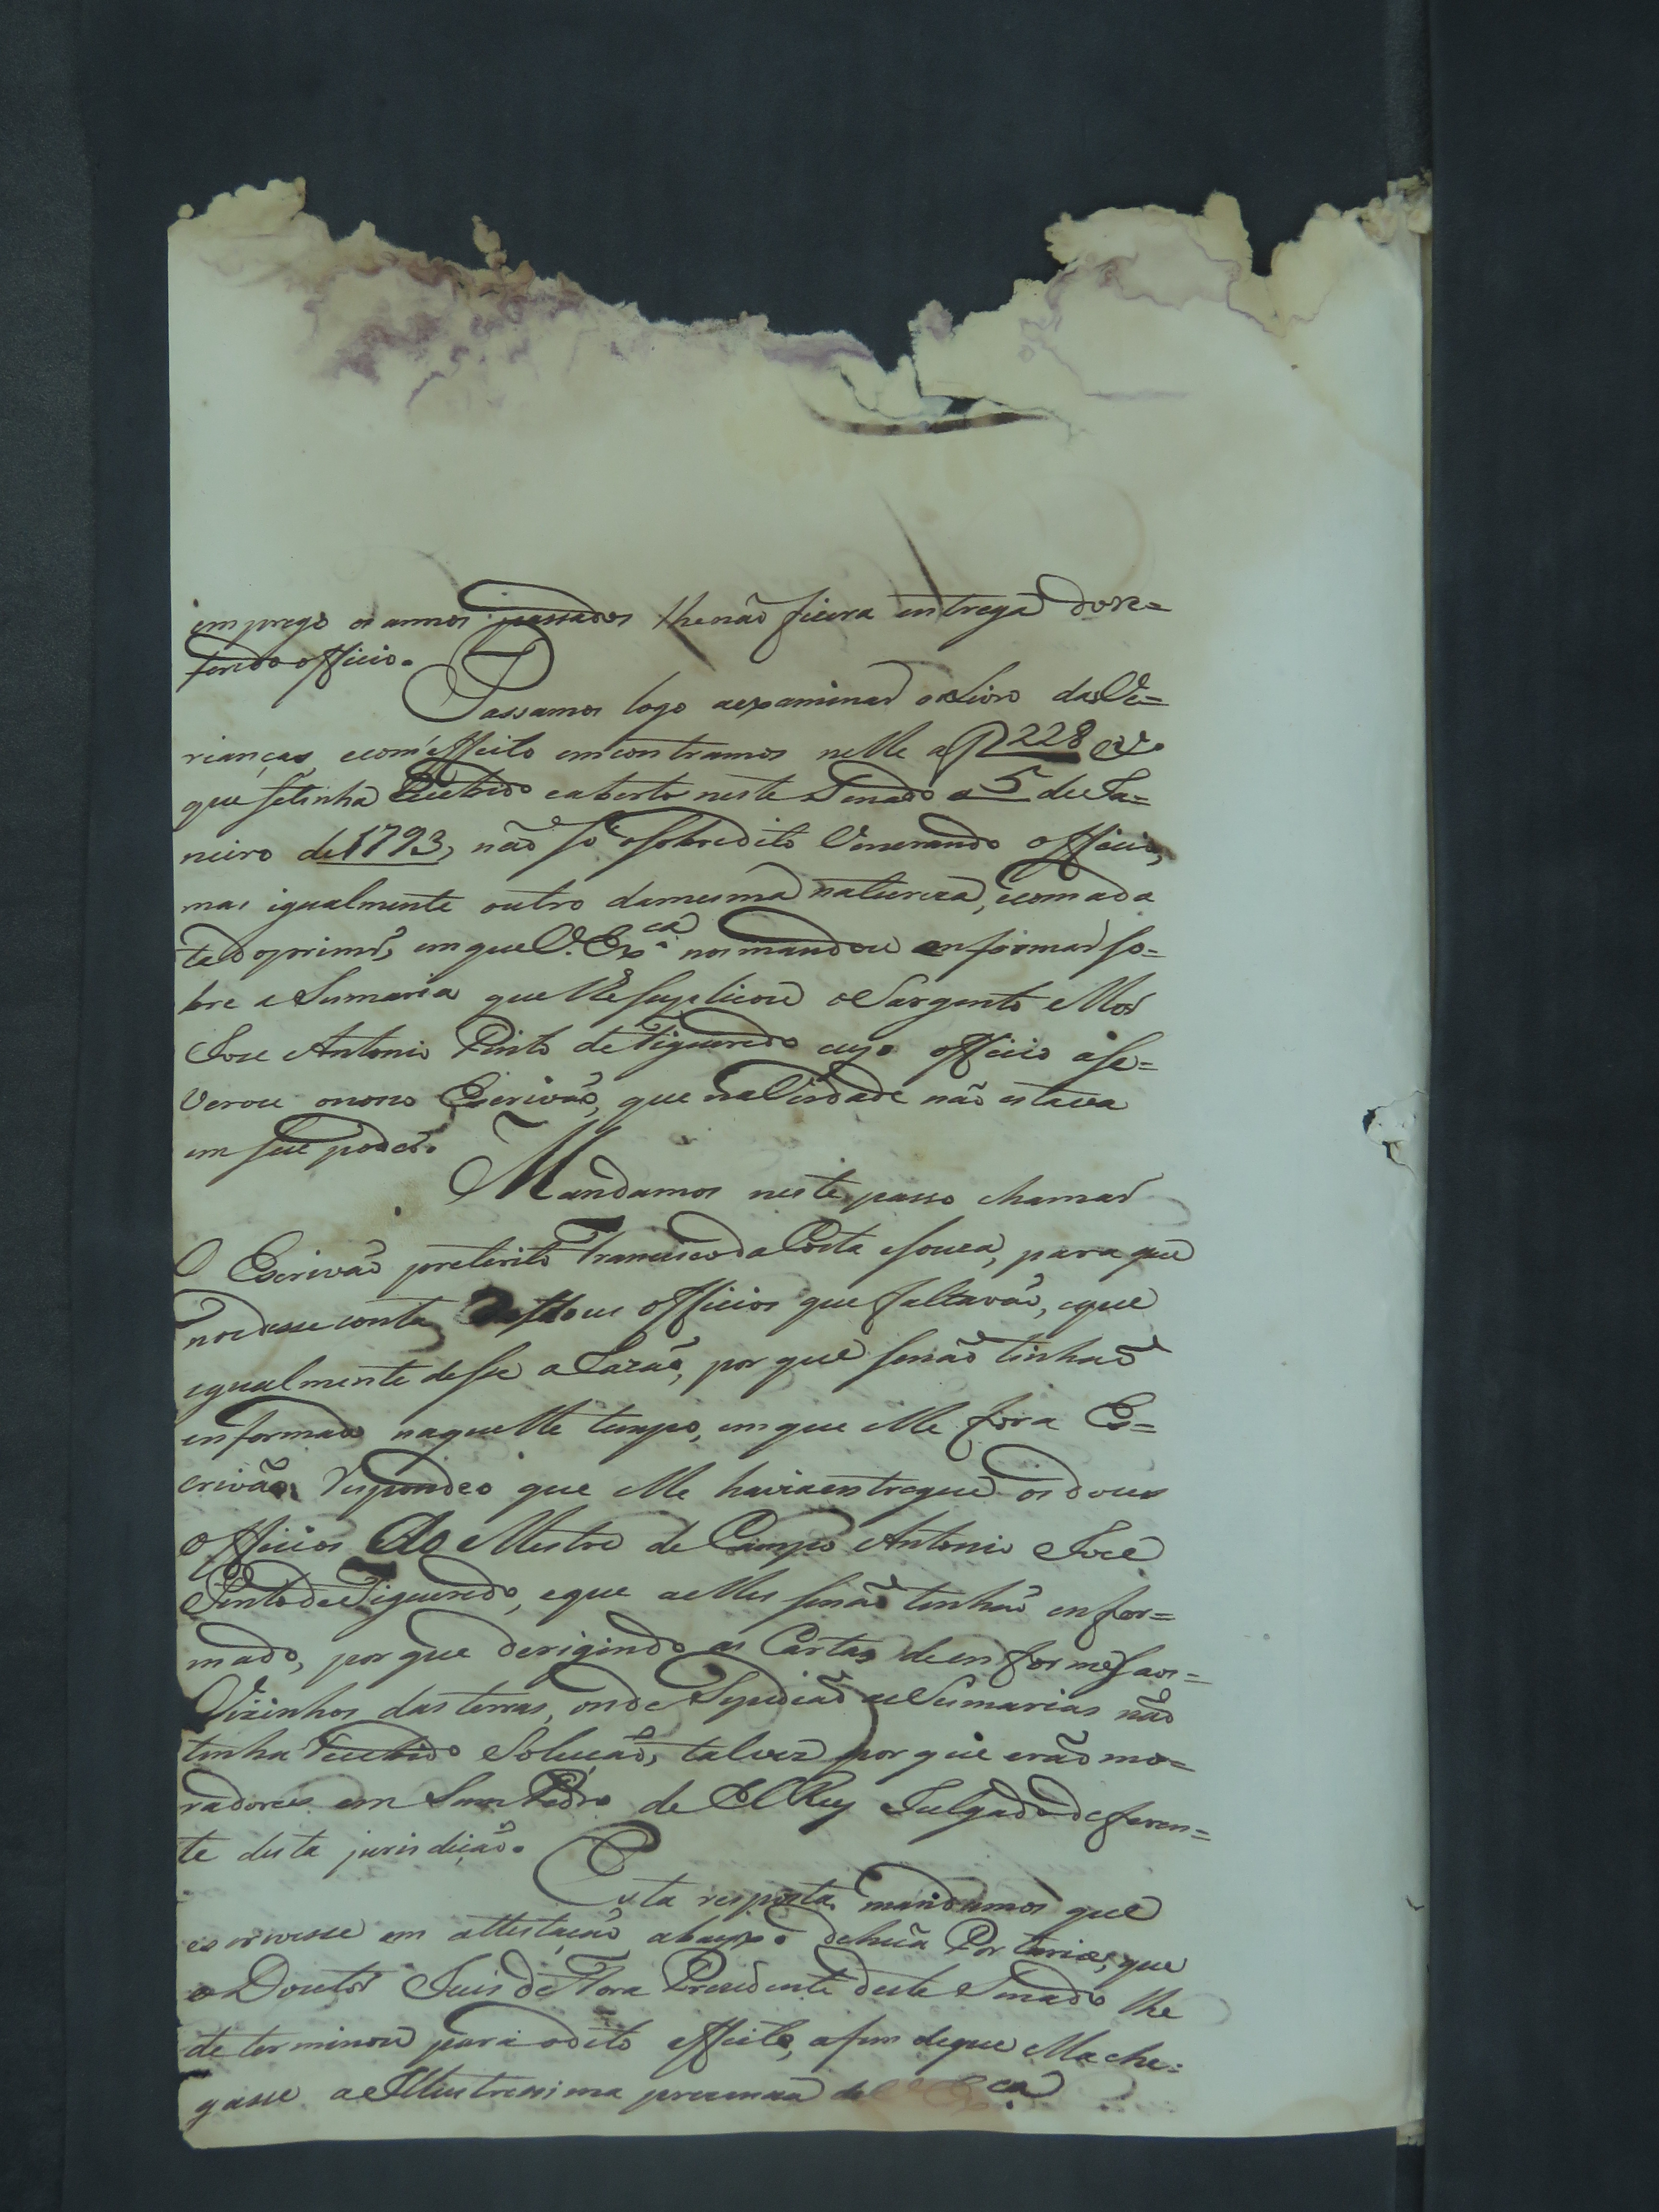 imprego os annos passados lhe não ficera entrega do re=
ferido officio.
Passamos logo a examinar o Livro das Ve=
rianças, e com effeito emcontramos nelle a f 228 v.º
que se tinha Recebido e aberto neste Senado a 5 de Ja=
neiro de 1793, não só o sobredito Venerando officio,
mas igualmente outro da mesma natureza, e com a da
ta do prim.º, em que V. Ex.cia nos mandou enformar so=
bre a Sumaria que lhe suplicou o Sargento Mor
Jose Antonio Pinto de Figueredo cujo officio ase=
verou o novo Escrivão, que na Verdade não estava
em seu poder.
Mandamos neste passo chamar
O Escrivão preterito Francisco da Costa Souza, para que
nos desse conta destes dous officios que faltavão, e que
egualmente desse a Razão, por que se não tinhão
enformado naquelle tempo, em que elle fora Es=
crivão. Respondeo que elle havia entregue os dous
officios Ao Mestre de Campo Antonio José
Pinto de Figueredo, e que a elles se não tinhão enfor=
mado, por que derigindo as Cartas de enformes aos=
Vizinhos das terras, onde se pedião as Sumarias não
tinha Recebido Solução, talvez por que erão mo=
radores em Sam Pedro de El Rey Julgado deferen=
te desta jurisdição.
Esta resposta mandamos que
escrevesse em attestação abayxo de huã Portaria, que
o Doutor Juis de Fora Prezidente deste Senado lhe
determinou para o dito effeito, a fim de que ella che=
gasse a Illustrissima prezença de V. Ex.cia